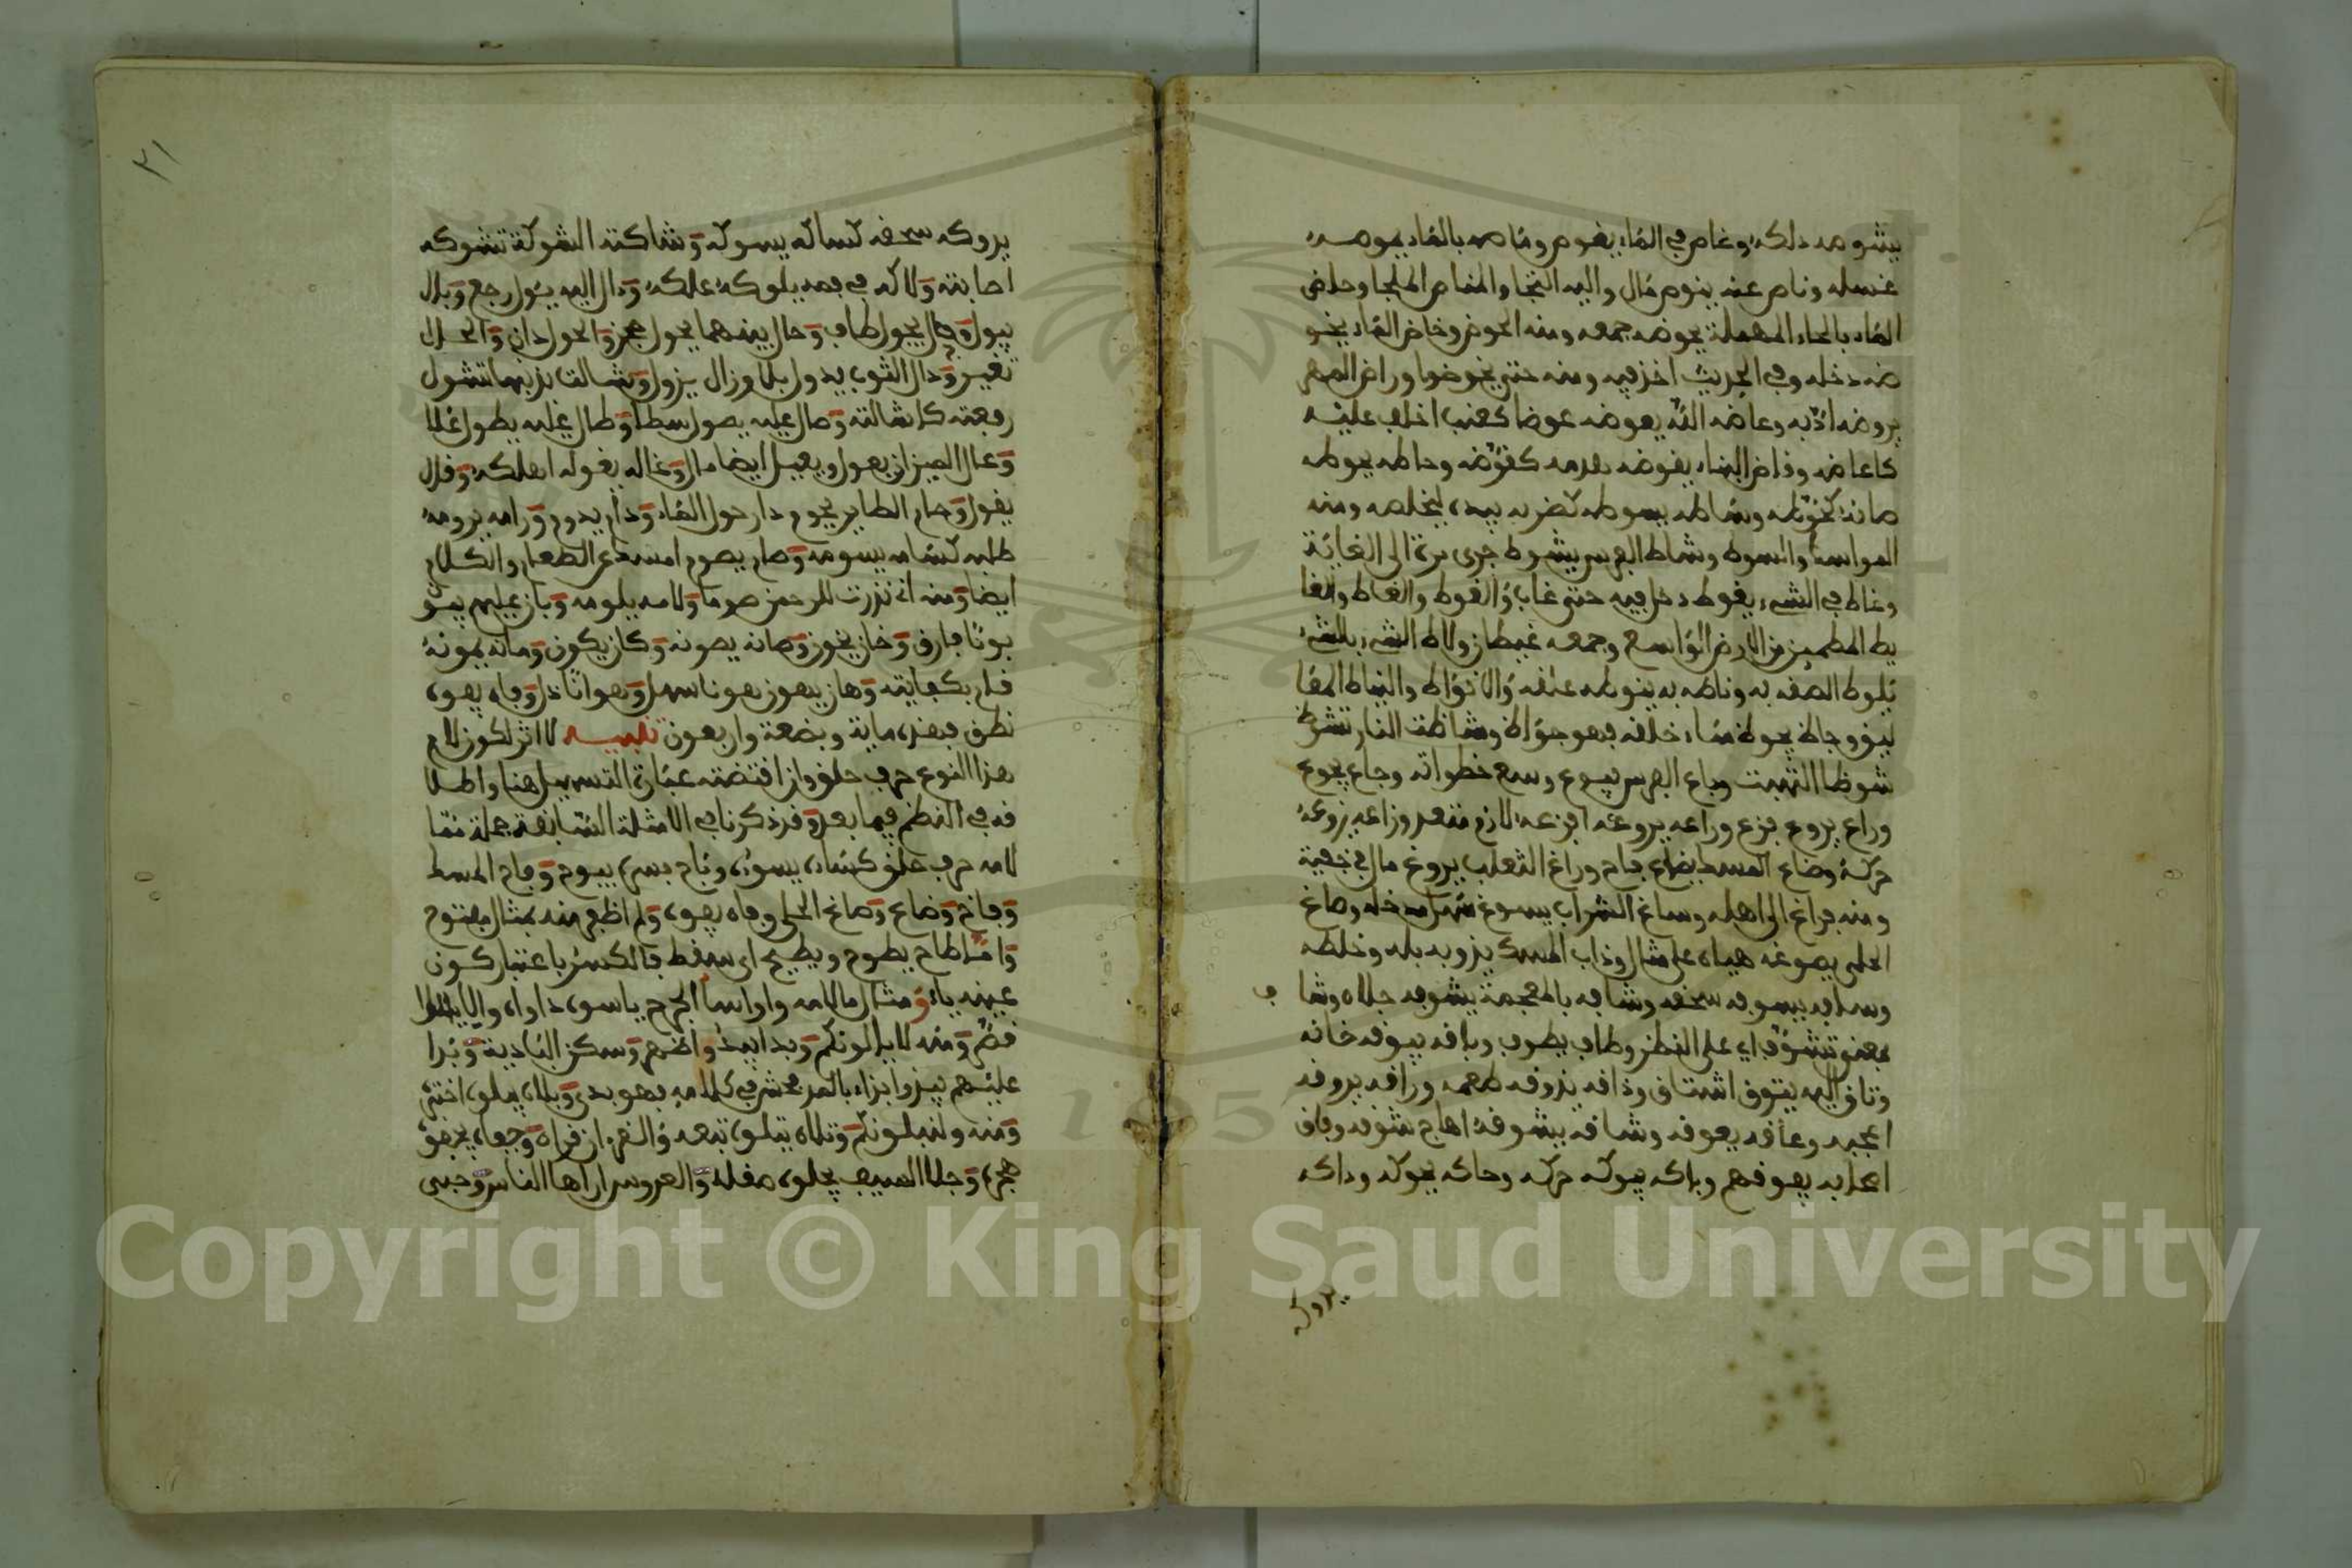 يشوصه دلكه وغاص في الماء يغوص وماصه بالماء يموصه
غسله وناص عنه ينوص مال واليه التجا والمناص الملجا وحاض
الماء بالحاء المهملة يحوضه جمعه ومنه الحوض وخاض الماء يخو
ضه دخله وفي الحديث اخذ فيه ومنه حتى يخوضوا وراض المهر
يروضه ادّبه وعاضه الله يعوضه عوضا كعنب اخلف عليه
كاعاضه وفاض البناء يقوضه هدمه كقوّضه وحاطه يحوطه
صانه كحوّطه وساطه يسوطه كضربه بيده ليخلصه ومنه
المواسط والسوط وشاط الفرس يشوط جرى مرة الى الغاية
وغاط في الشيء يغوط دخل فيه حتى غاب والغوط والغاط والغا
يط المطمين من الارض الواسع وجمعه غيطان ولاط الشيء بالشيء
يلوط الصقه به وناطه به ينوطه علقه والانواط والنياط المعا
ليق وجاظ يجوظ ساء خلقه فهو جواظ وشاظت النار تشوظ
شوظا التهبت وباع الفرس يبوع وسع خطواته وجاع يجوع
وراع يروع فزع وراعه يروعه افزعه لازم متعد وزاعه يزوعه
حركه وضاع المسك يضوع فاح وراغ الثعلب يروغ مال في خفية
ومنه فراغ الى اهله وساغ الشراب يسوغ سهل مدخله وصاغ
الحلي يصوغه هياه على مثال وذاب المسك يذوبه بله وخلطه
وسافه يسوفه سحقه وشافه بالمعجمة يشوفه جلاه وشا ف
بمعنى تشوّف اي على النظر وطاف يطوف وباقه يبوقه خانه
وتاق اليه يتوق اشتاق وذاقه يذوقه طعمه وراقه يروقه
اعجبه وعاقه يعوقه وشاقه يشوقه اهاج شوقه وفاق
اصحابه يفوقهم وباكه يبوكه حركه وحاكه يحوكه وداكه
يدوكه
يدوكه سحقه كساكه يسوكه وشاكته الشوكة تشوكه
اصابته ولاكه في فمه يلوكه علكه وءال اليه يئول رجع وبال
يبول وجال يجول طاف وحال بينهما يحول حجز والحول دار والحال
تغير ودال الثوب يدول بلي وزال يزول وشالت بذنبها تشول
رفعته كاشالته وصال عليه يصول سطا وطال عليه يطول علا
وعال الميزان يعول ويعيل ايضا مال وغاله يغوله اهلكه وقال
يقول وحام الطاير يحوم دار حول الماء ودام يدوم ورامه يرومه
طلبه كسامه يسومه وصام يصوم امسك عن الطعام والكلام
ايضا ومنه اني نذرت للرحمن صوما ولامه يلومه وبان عليهم يبو
بونا فارق وخان يخون وصانه يصونه وكان يكون ومانه يمونه
قام بكفايته وهان يهون هونا سهل وهوانا ذل وفاه يفوه
نطق فهذه ماية وبضعة واربعون تنبيه لا اثر لكون لام
هذا النوع حرف حلق وان اقتضته عبارة التسهيل هنا واطلا
قه في النظم فيما بعد وقد ذكرنا في الامثلة السابقة جملة مما
لامه حرف حلق كساءه يسوءه وباح بسره يبوح وفاح المسك
وفاخ وضاع وصاغ الحلي وفاه يفوه ولم اظفر منه بمثال مفتوح
واما طاح يطوح ويطيح اي سقط فالكسر باعتبار كون
عينه ياء ومثال ما لامه واو اسا الجرح ياسوه داواه والا
قصّر ومنه لا يالونكم وبدا يبدو اظهر وسكن البادية وبذا
عليهم يبذو بذاء بالمد فحش في كلامه فهو بذي وبلاه يبلوه اختبره
ومنه ولنبلونكم وتلاه يتلوه تبعه والقرءان قراه وجفاه يجفوه
هجره وجلا السيف يجلوه صقله والعروس اراها الناس وحبى
٣١